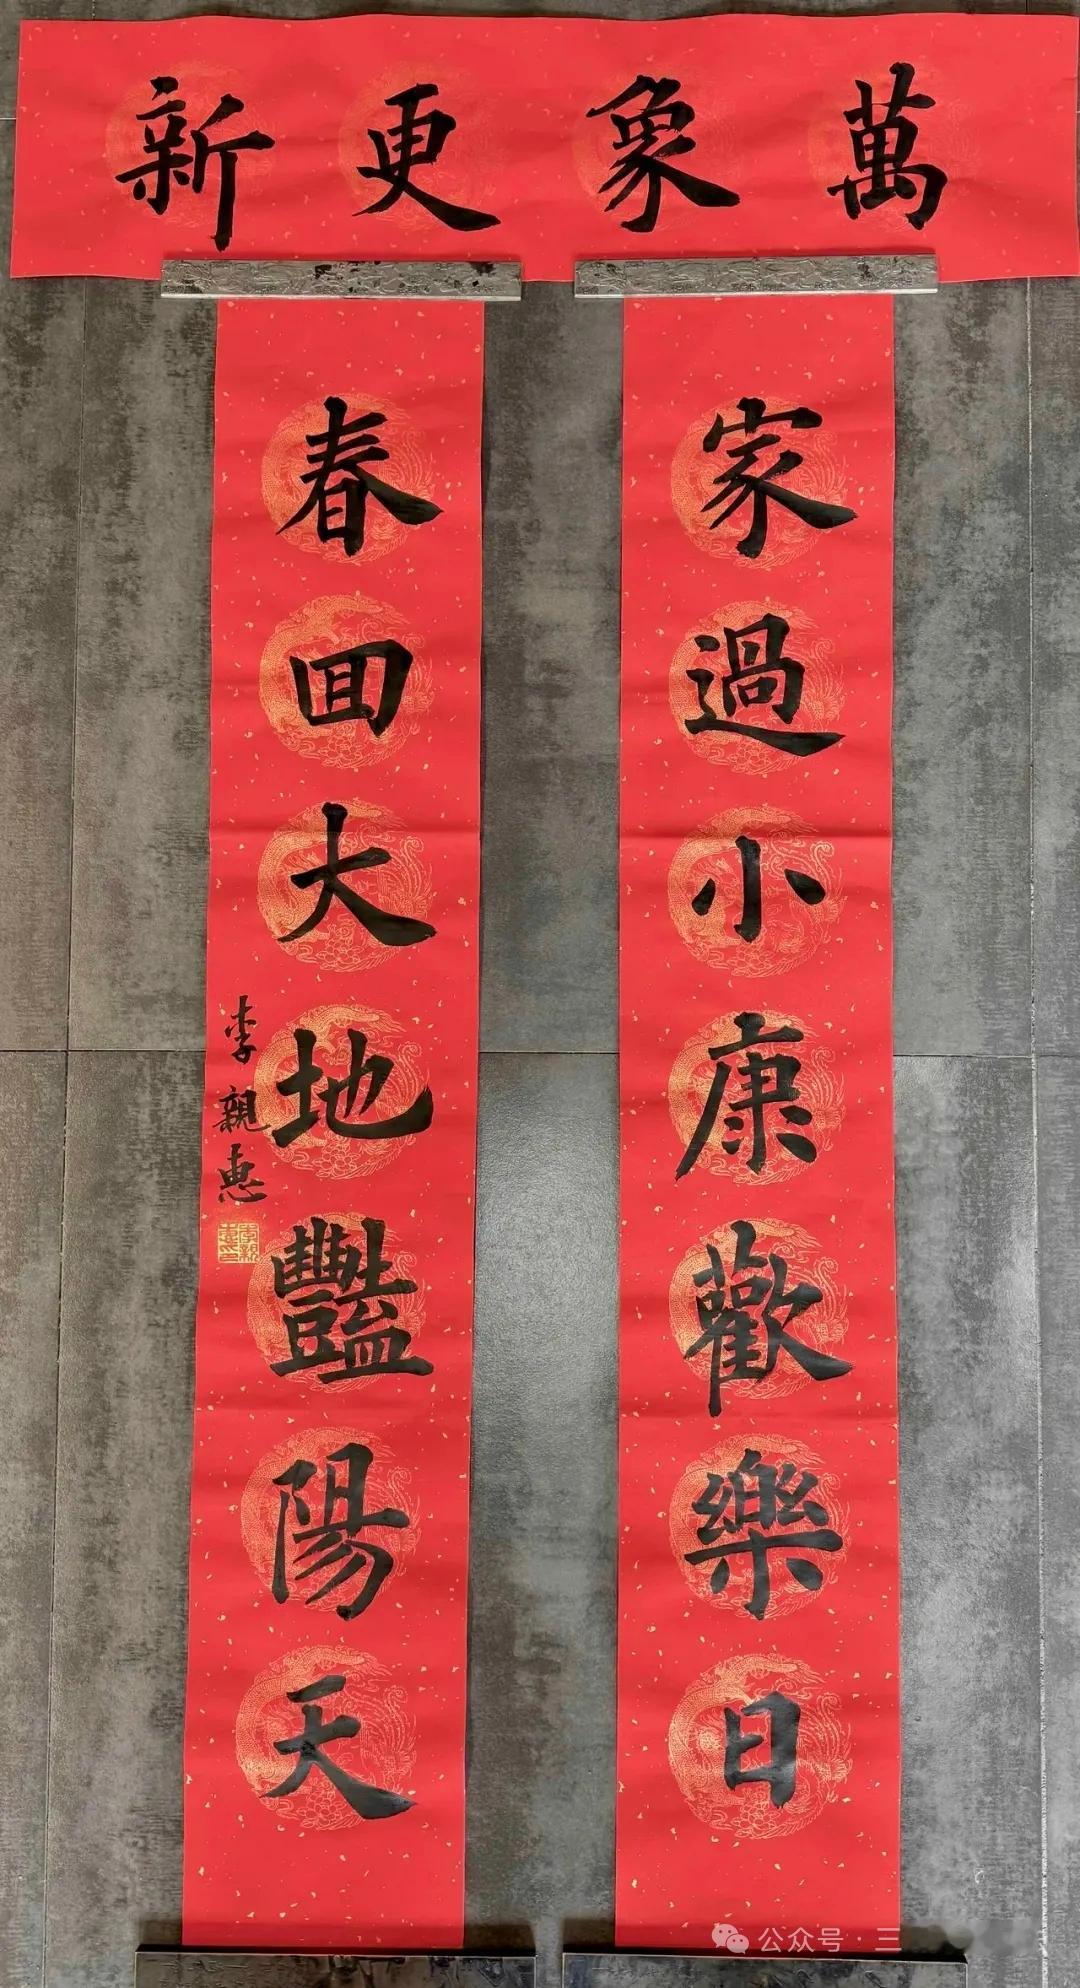 萬象更新
家過小康歡樂日
春回大地豔陽天
李親惠
公众号·三